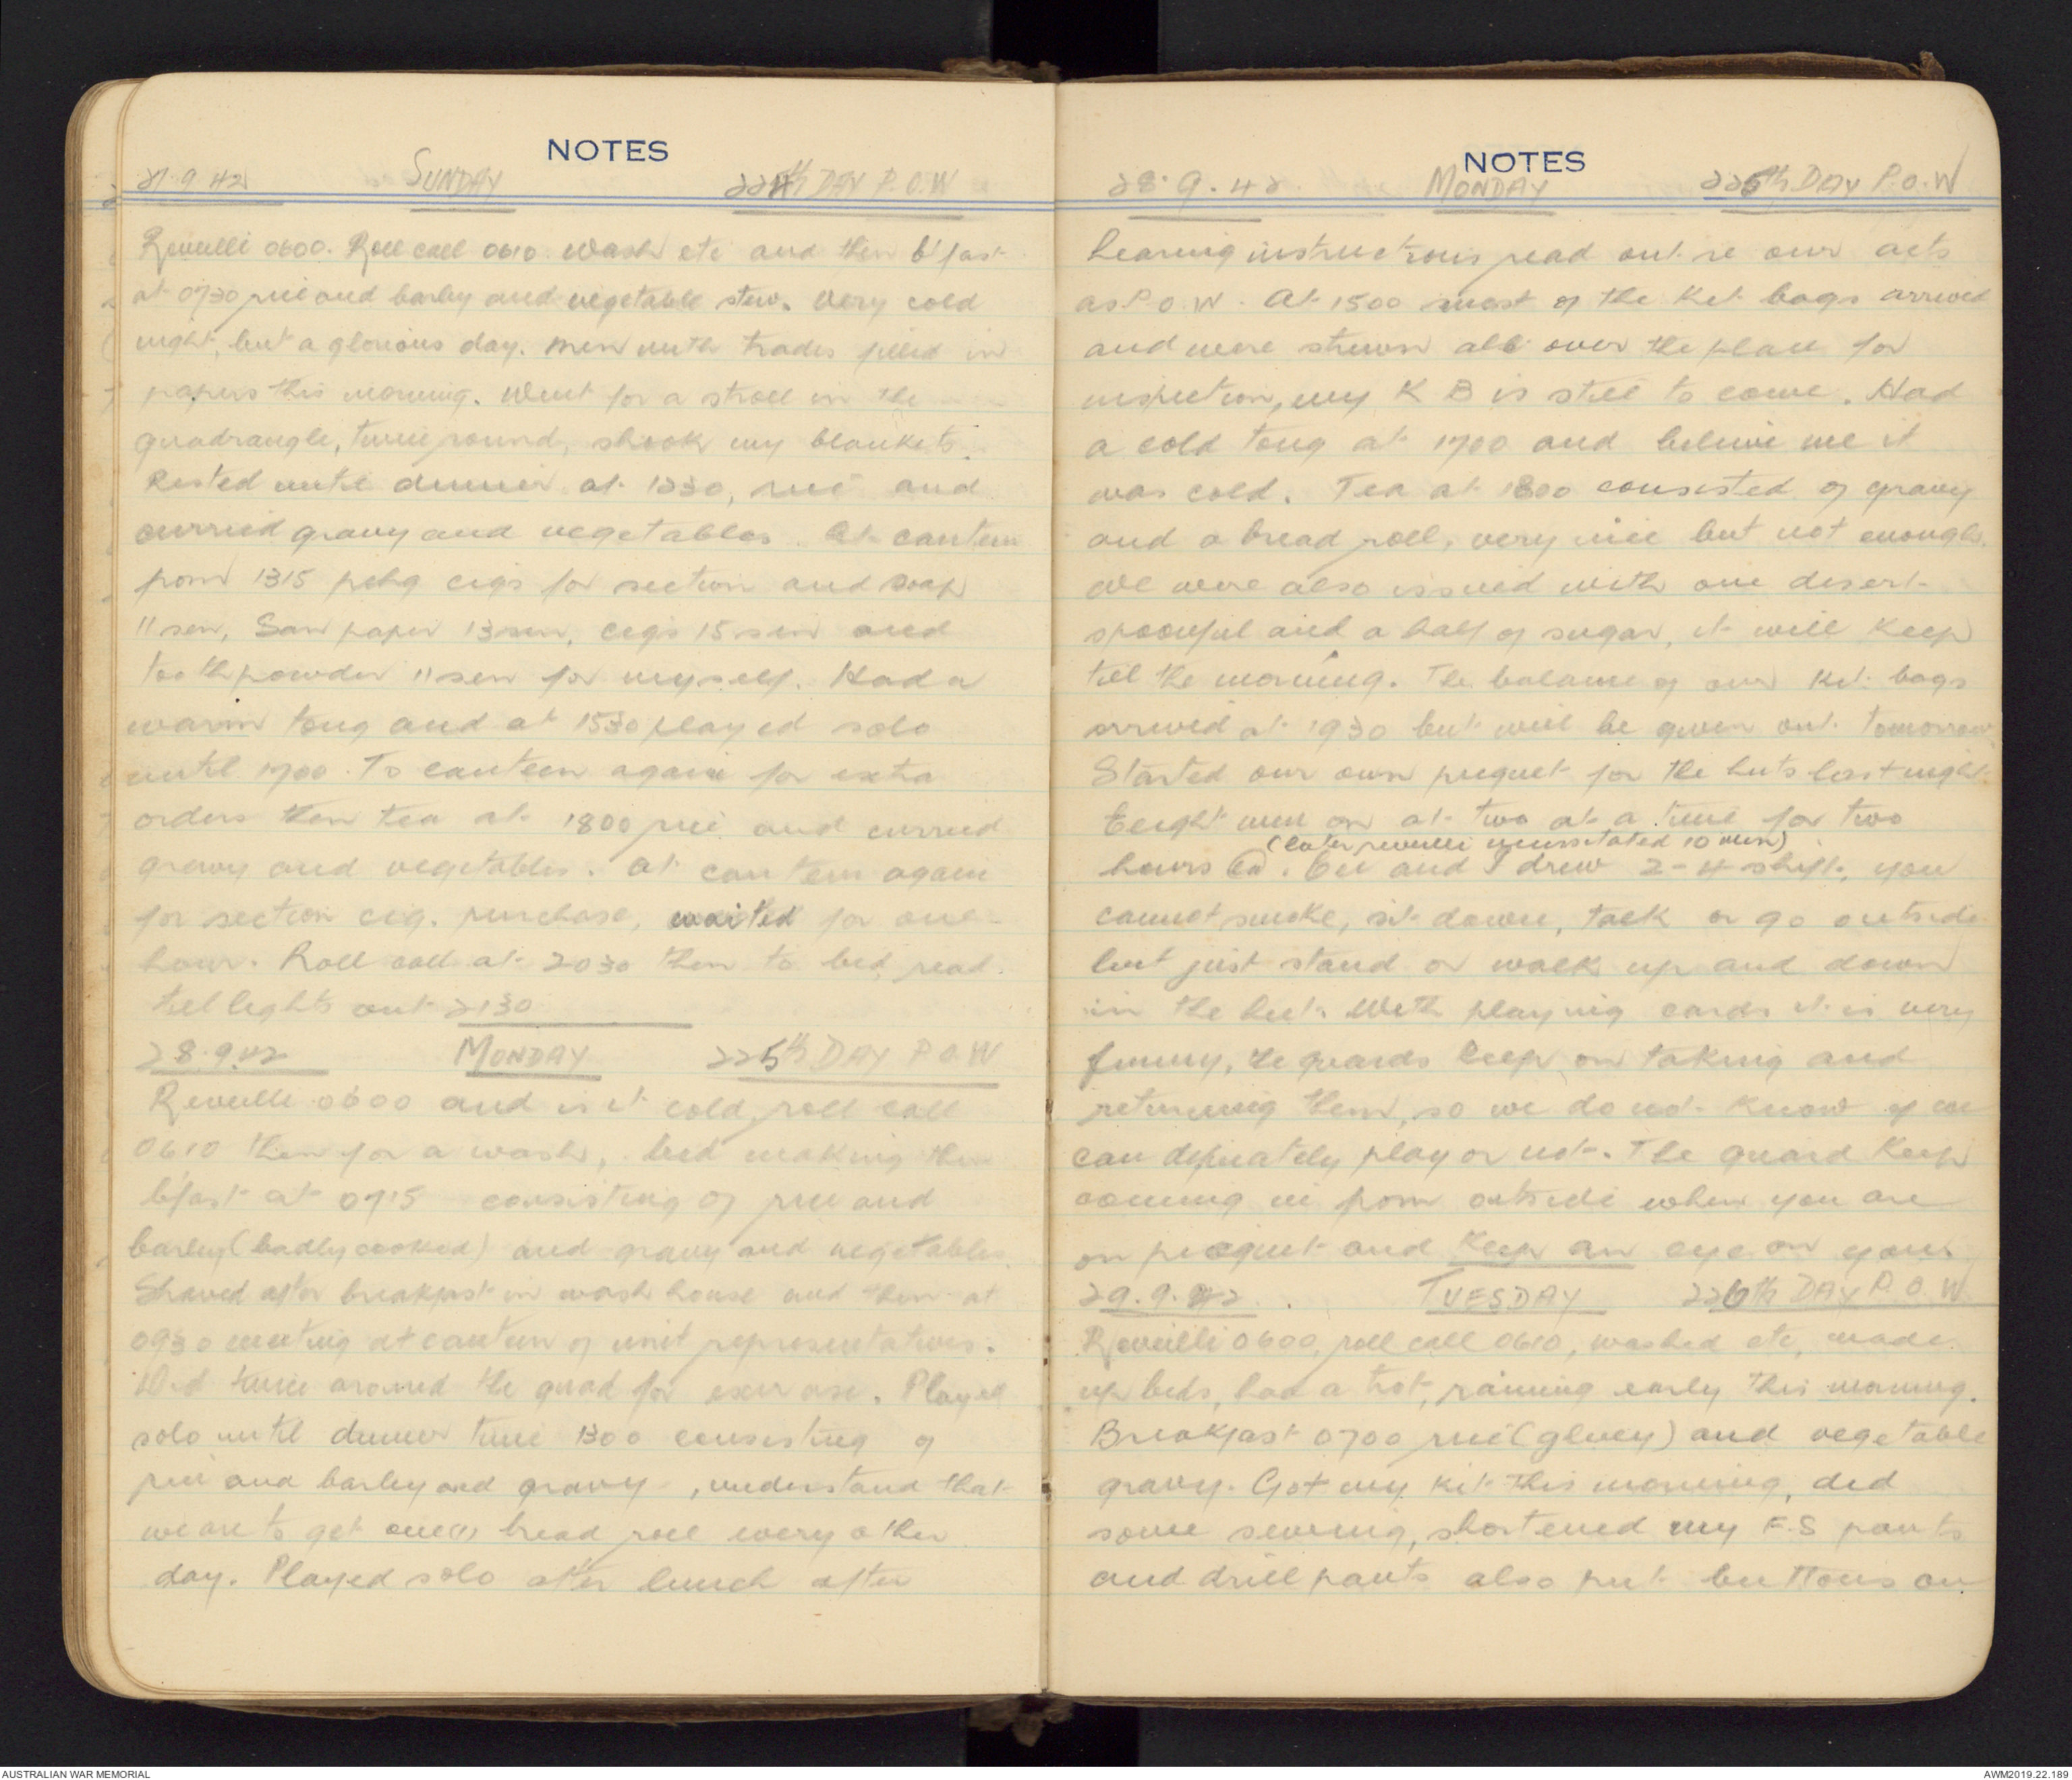 NOTES
27.9.42 SUNDAY 224th DAY P.O.W
Reveille 0600. Roll call 0610 wash etc and then b'fast
at 0730 rice and barley and vegetable stew. Very cold
night, but a glorious day. Men with trades filled in
papers this morning. Went for a stroll in the
quadrangle, twice round, shook my blankets.
Rested until dinner at 1230, rice and
curried gravy and vegetables. At canteen
from 1315 cigs for section and soap
11 sen, San paper 13 sen, cigs 15 sen and
tooth powder 11 sen for myself. Had a
warm tong and at 1530 played solo
until 1700. To canteen again for extra
orders then tea at 1800 rice and curried
gravy and vegetables. At canteen again
for section cig. purchase, waited for one
hour. Roll call at 2030 then to bed, read
till lights out 2130
28.9.42 MONDAY 225th DAY P.O.W
Reveille 0600 and is it cold, roll call
0610 then for a wash, bed making then
b'fast at 0715 consisting of rice and
barley (badly cooked) and gravy and vegetables.
Shaved after breakfast in wash house and then at
0930 meeting at canteen of unit representatives.
Did twice around the quad for exercise. Played
solo until dinner time 1300 consisting of
rice and barley and gravy, understand that
we are to get one bread roll every other
day. Played solo after lunch after
NOTES
28.9.42. MONDAY 225th DAY P.O.W
hearing instructions read out re our acts
as P.O.W. At 1500 most of the kit bags arrived
and were strewn all over the place for
inspection, my K B is still to come. Had
a cold tong at 1700 and believe me it
was cold. Tea at 1800 consisted of gravy
and a bread roll, very nice but not enough.
We were also issued with one desert-
spoonful and a half of sugar, it will keep
till the morning. The balance of our kit bags
arrived at 1930 but will be given out tomorrow
Started our own picquet for the huts last night.
Eeight men on at two at a time for two
(Later reveille necessitated 10 men)
hours ea. and I drew 2-4 shift, you
cannot smoke, sit down, talk or go outside
but just stand or walk up and down
in the hut. With playing cards it is very
funny, the guards keep on taking and
returning them, so we do not know if we
can definately play or not. The guard keep
coming in from outside when you are
on picquet and keep an eye on you.
29.9.42. TUESDAY 226th DAY P.O.W
Reveille 0600, roll call 0610, washed etc, made
up beds, had a trot, raining early this morning.
Breakfast 0700 rice (gluey) and vegetable
gravy. Got my kit this morning, did
some sewing, shortened my F.S pants
and drill pants also put buttons on
AUSTRALIAN WAR MEMORIAL
AWM2019.22.189